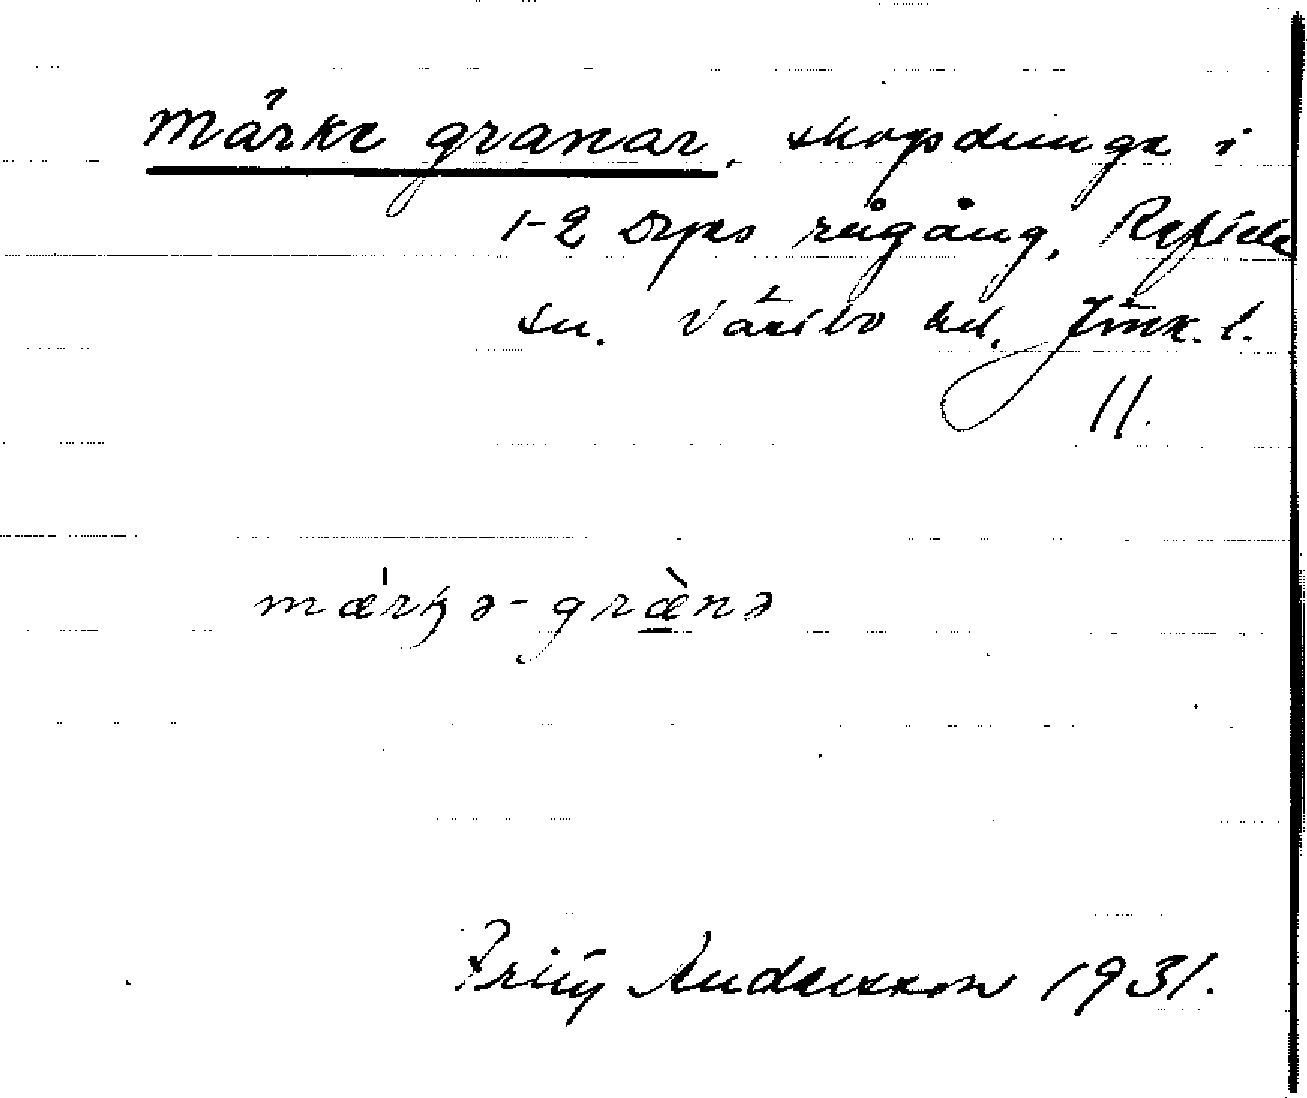 Märke granar, skogsdunge i
1-2 Orps rågång, Reftele
sn. Västbo hd, Jönk. l.
11.
mǽrķə-græ̀nə
Fritz Andersson 1931.